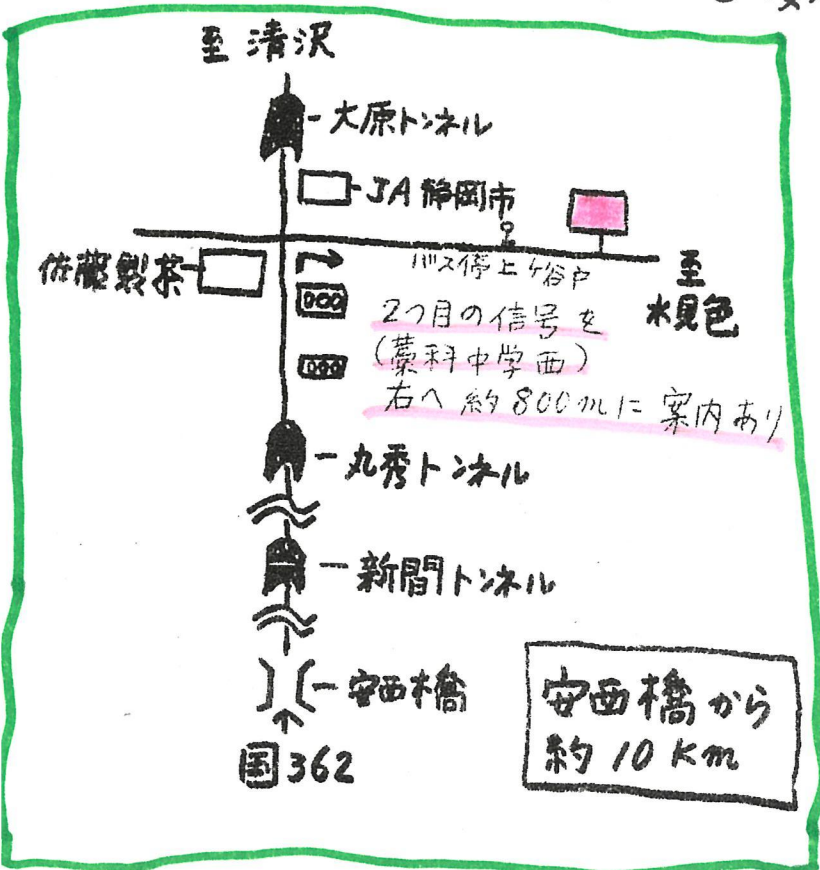 至 清沢
大原トンネル
JA 静岡市
佐藤製茶
バス停 上ヶ谷戸
至
水見色
2つ目の信号を
(藁科中学西)
右へ 約800mに 案内あり
丸秀トンネル
新間トンネル
安西橋
国362
安西橋から
約10Km